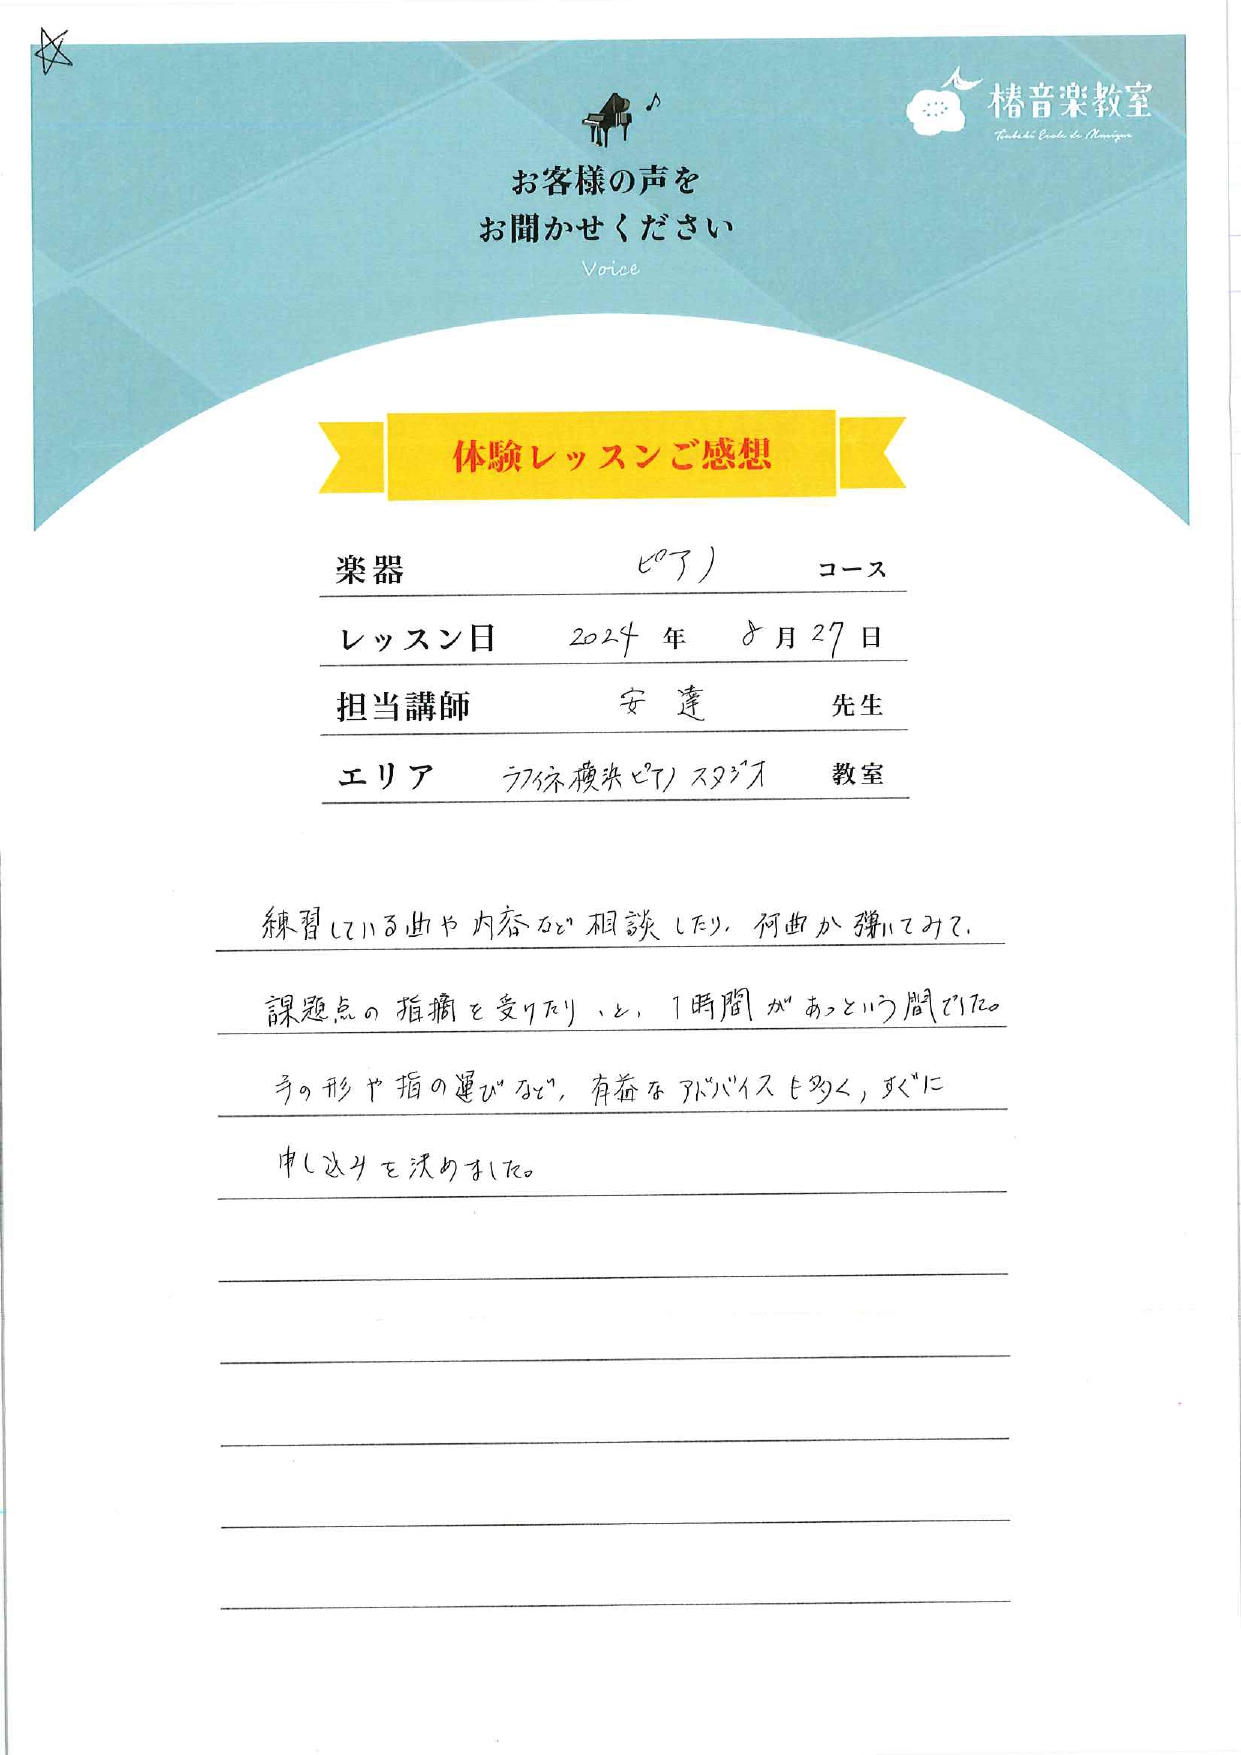 椿音楽教室
Tsubaki Ecole de Musique
お客様の声を
お聞かせください
Voice
体験レッスンご感想
楽器 ピアノ コース
レッスン日 2024 年 8 月 27 日
担当講師 安達 先生
エリア ラフィネ横浜ピアノスタジオ 教室
練習している曲や内容など相談したり、何曲か弾いてみて、
課題点の指摘を受けたり、と、1時間があっという間でした。
手の形や指の運びなど、有益なアドバイスも多く、すぐに
申し込みを決めました。